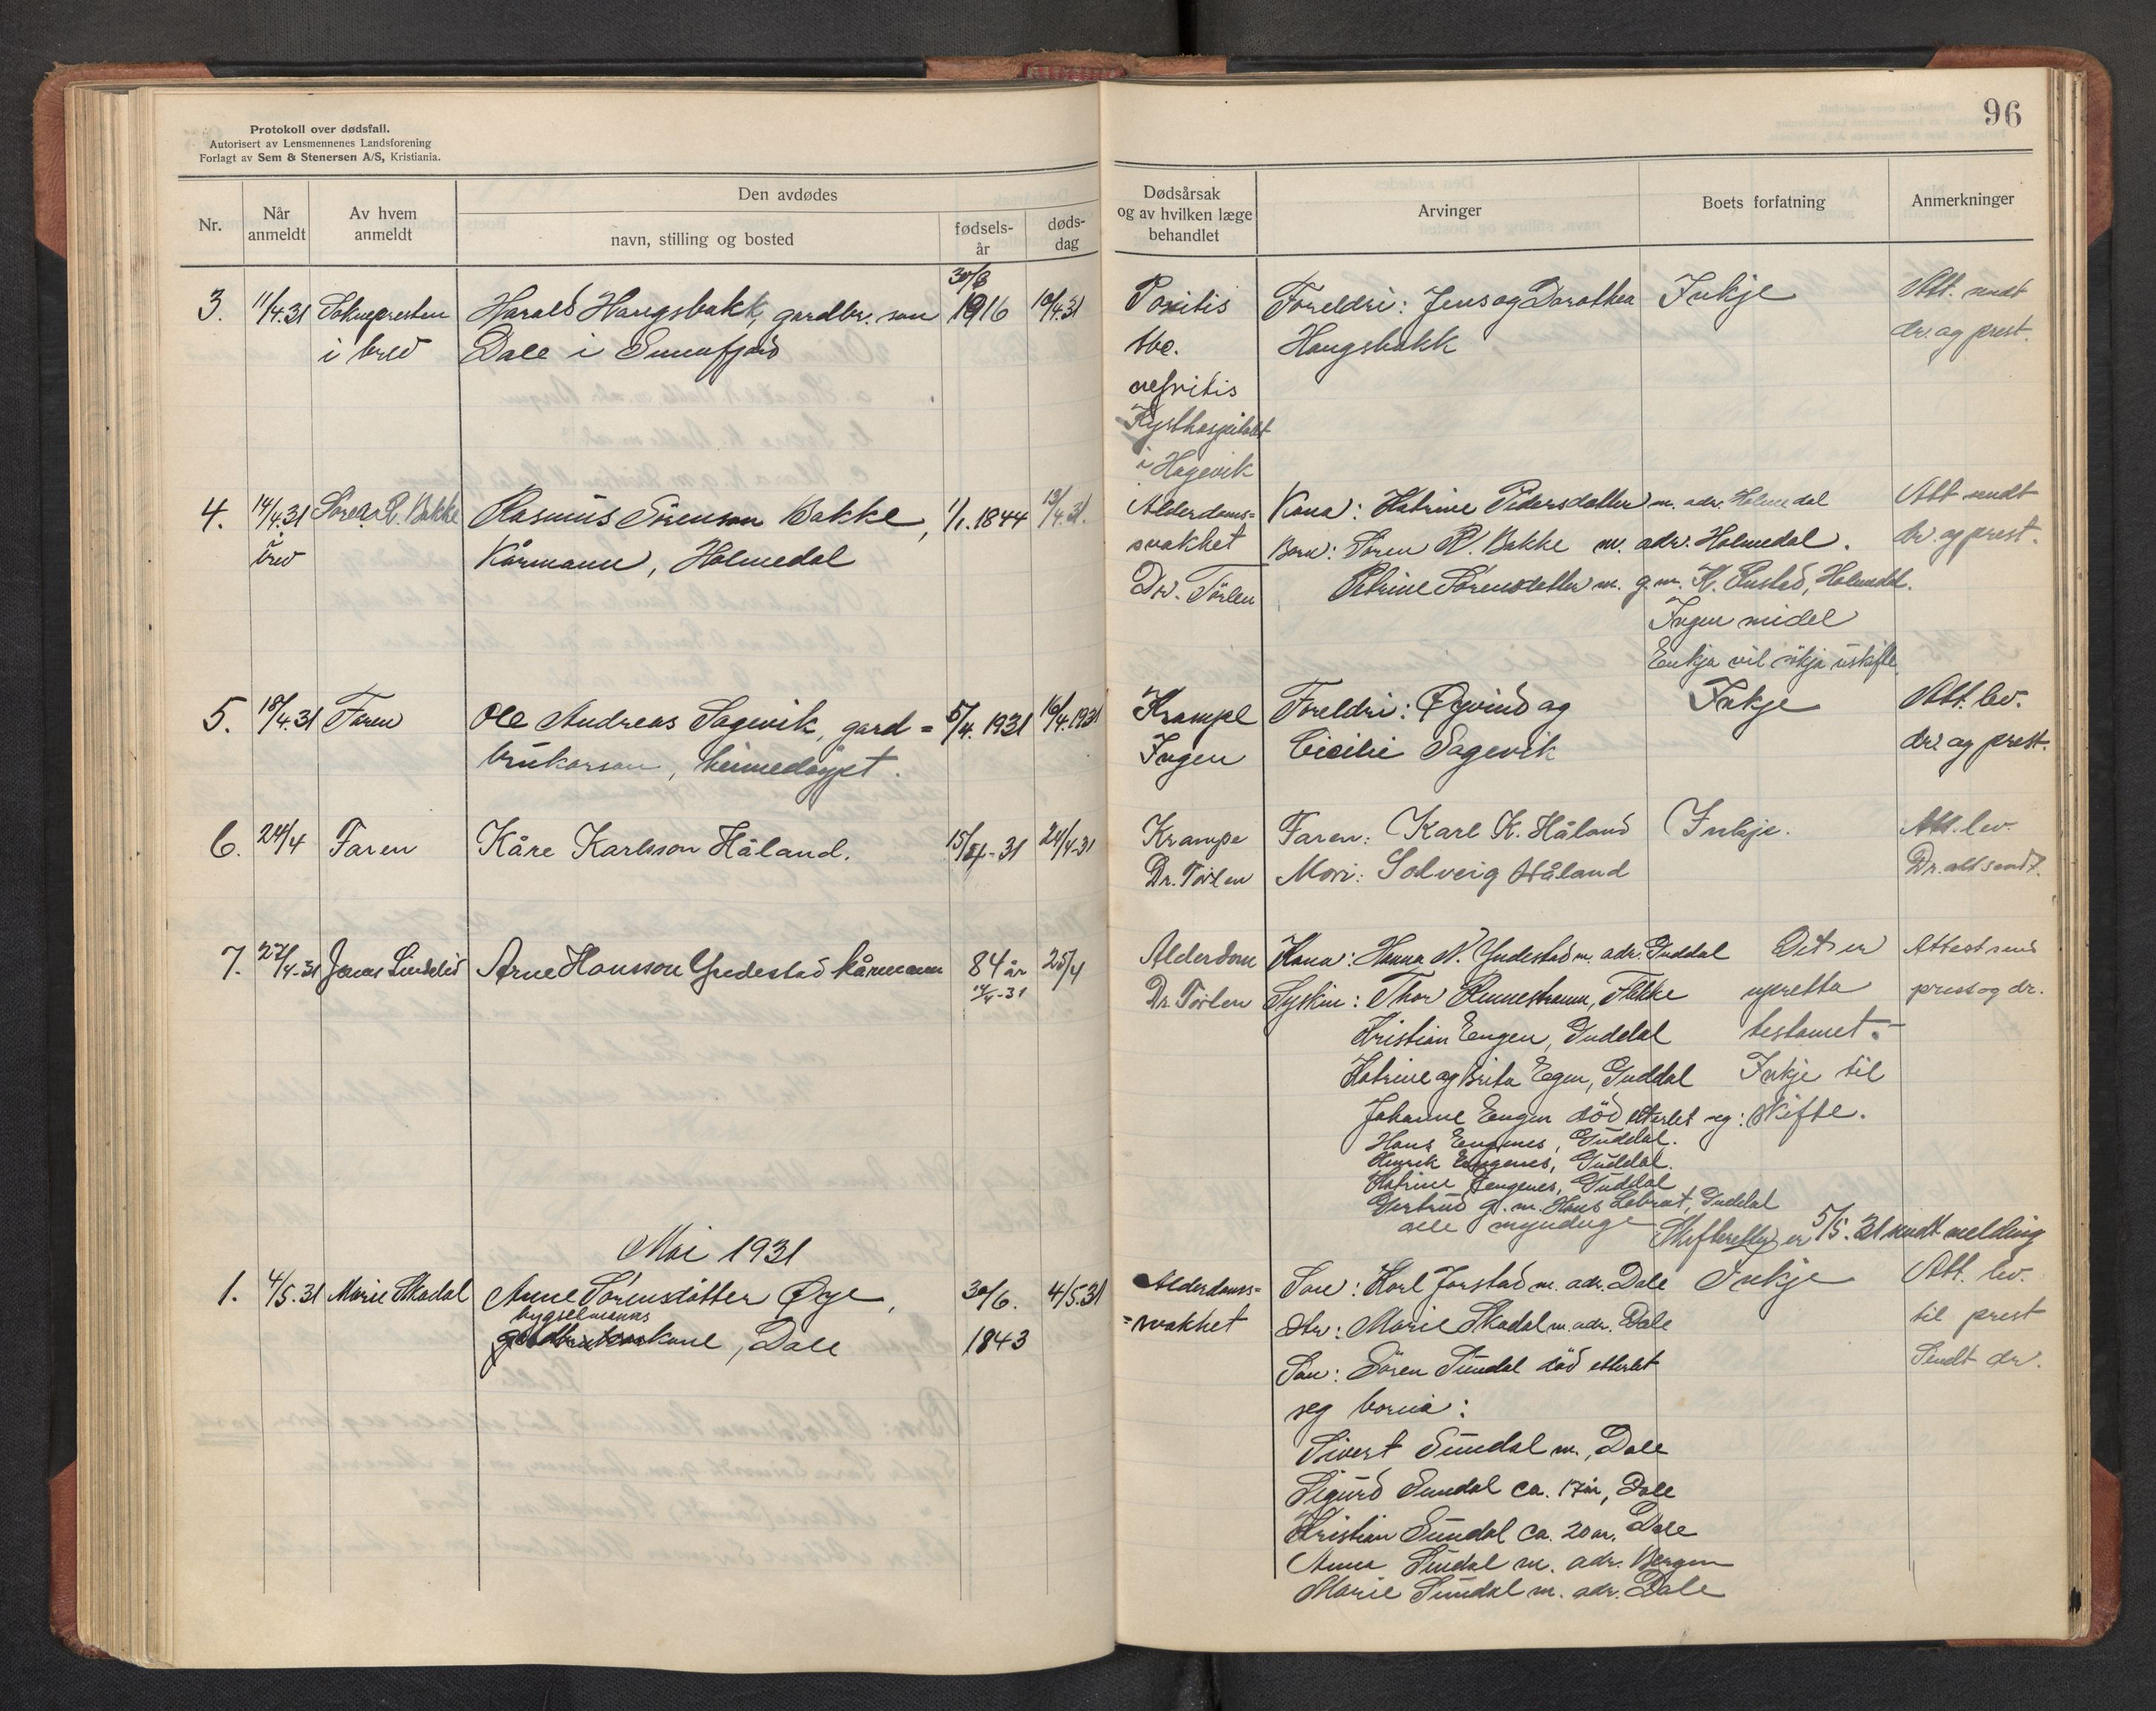 Protokoll over dødsfall.
Autorisert av Lensmennenes Landsforening
Forlagt av Sem & Stenersen A/S, Kristiania.
96
Nr.
Når anmeldt
Av hvem anmeldt
Den avdødes
navn, stilling og bosted
fødsels-år
døds-dag
Dødsårsak og av hvilken læge behandlet
Arvinger
Boets forfatning
Anmerkninger
3. 11/4.31 Soknepresten Harald Haugsbakk, gardbr. son 30/8 1916 10/4.31
i brev Dale i Sunnfjord
tbc.
nefritis
Kysthospitalet
i Hagevik
Foreldri: Jens og Dorothea
Haugsbakk
Inkje
Att. sendt
dr. og prest.
4. 14/4.31 Søren R. Bakke Rasmus Sørenson Bakke, 1/1. 1844 13/4.31.
brev Kårmann, Holmedal
Alderdoms=
svakhet
Dr. Tørlen
Kona: Katrine Pedersdotter m. adr. Holmedal
Born: Søren R. Bakke m. adr. Holmedal.
Petrine Sørensdotter m. g.m. K. Rustad, Holmedal.
Ingen midel
Enkja vil sökja uskifte
Att sendt
dr. og prest.
5. 18/4.31 Faren Ole Andreas Sagevik, gard= 5/4. 1931 16/4.1931
brukarson, heimedöypt.
Krampe
Ingen
Foreldri: Øyvind og
Cicilie Sagevik
Inkje
Att. lev.
dr. og prest.
6. 24/4 Faren Kåre Karlsson Håland. 15/4-31 24/4-31
Krampe
Dr. Törlen
Faren: Karl K. Håland
Mori: Solveig Håland
Inkje.
Att. lev.
Dr. att sendt.
7. 27/4-31 Jonas Lindelid Arne Hansson Yndestad kårmann 84 år 25/4
14/4-31
Alderdom
Dr. Tørlen
Kona: Hanna N. Yndestad m. adr. Guddal
Syskin: Thor Rennestraum, Flekke
Kristian Engen, Guddal
Katrine og Brita Egen, Guddal
Johanne Engen död etterlet seg:
Hans Engenes, Guddal.
Henrik Engenes, Guddal.
Katrine Engenes, Guddal
Gertrud g. m. Hans , Guddal
alle mynduge
Det er
upretta
testamet.
Inkje til
skifte.
Skifteretten er 5/5.31 sendt melding
Attest send
prest og dr.
Mai 1931
1. 4/5.31 Marie Skadal Anne Sörensdotter Øye, 30/6. 1843 4/5.31
bygselmanns
kone, Dale
Alderdoms=
=svakhet
Son: Karl Jarstad m. adr. Dale
Dtr: Marie Skadal m. adr. Dale
Son: Sören Sundal död etterlet
seg borna:
Sivert Sundal m., Dale
Sigurd Sundal ca. 17 år, Dale
Kristian Sundal ca. 20 år, Dale
Anna Sundal m. adr. Bergen
Marie Sundal m. adr. Dale
Inkje
Att. lev.
til prest
Sendt dr.